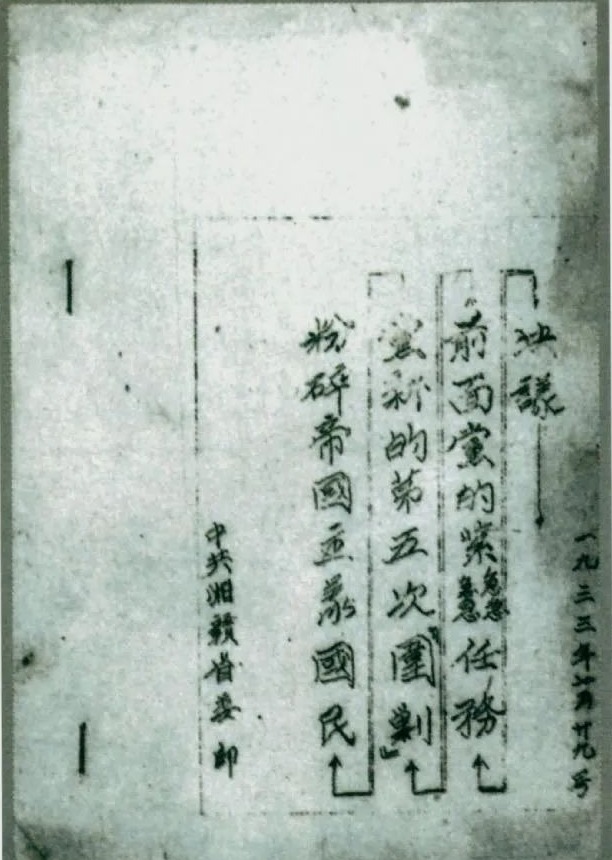 中共湘贛省委印
粉碎帝國主義國民
黨新的第五次"圍剿"
前面黨的緊急任務
決議
一九三三年七月廿九号